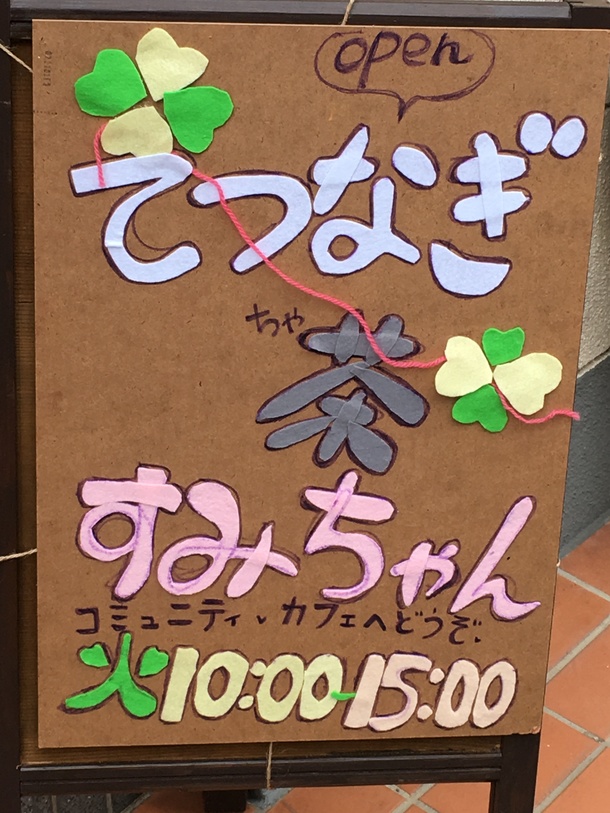 open
てつなぎ
ちゃ
茶
すみちゃん
コミュニティ、カフェへどうぞ。
火10:00-15:00